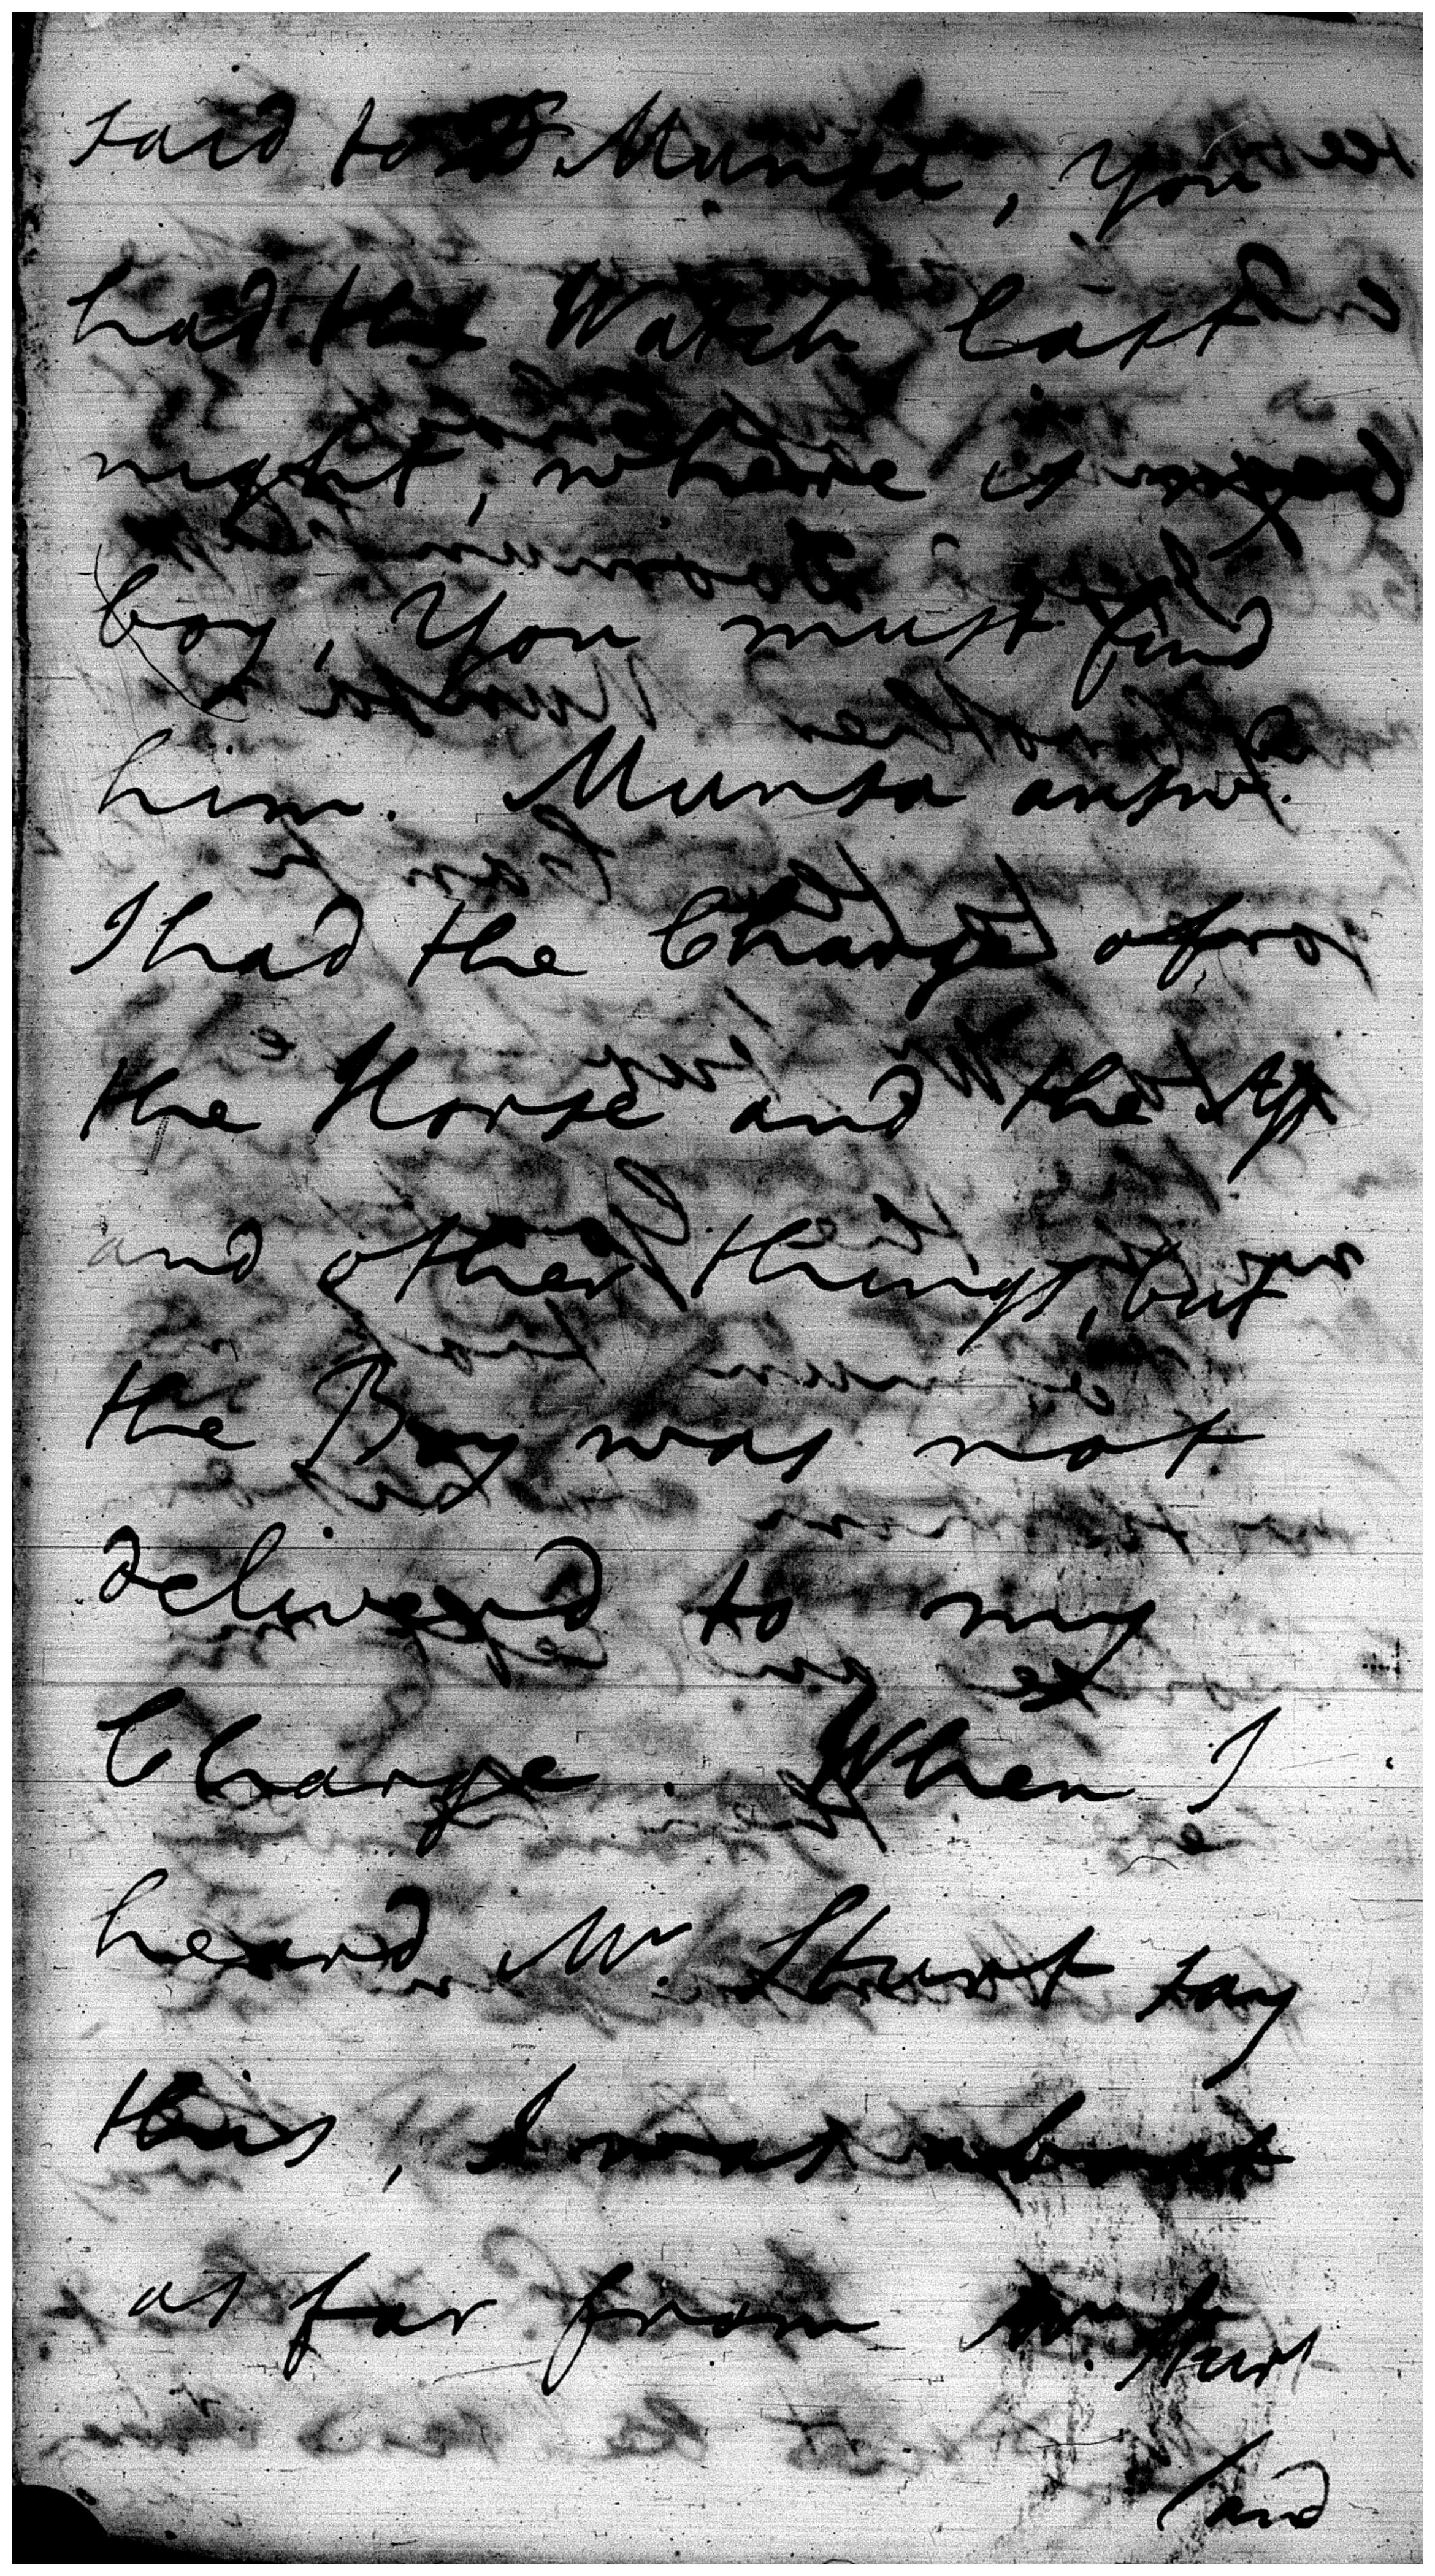 said to Munsa, You
had the Watch last
night, where is my
boy, You must find
him. Munsa answd.
I had the Charge of
the Horse and the
and other things, but
the Boy was not
delivered to my
Charge. When I
heard Mr. Sturt say
this, I was about
as far from Mr. Sturt
(and